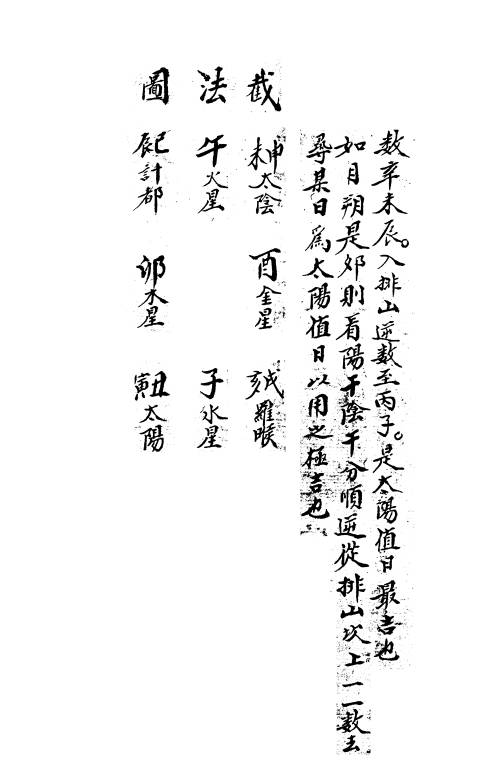 数辛未辰。入排山逆数至丙子。是太陽值日最吉也
如月朔是卯則看陽干陰干分順逆從排山次上一一数去
尋某日爲太陽值日以用之極吉也
截　未申太陰　酉金星　亥戌羅睺
法　午火星　子水星
圖　辰巳計都　卯木星　寅丑太陽